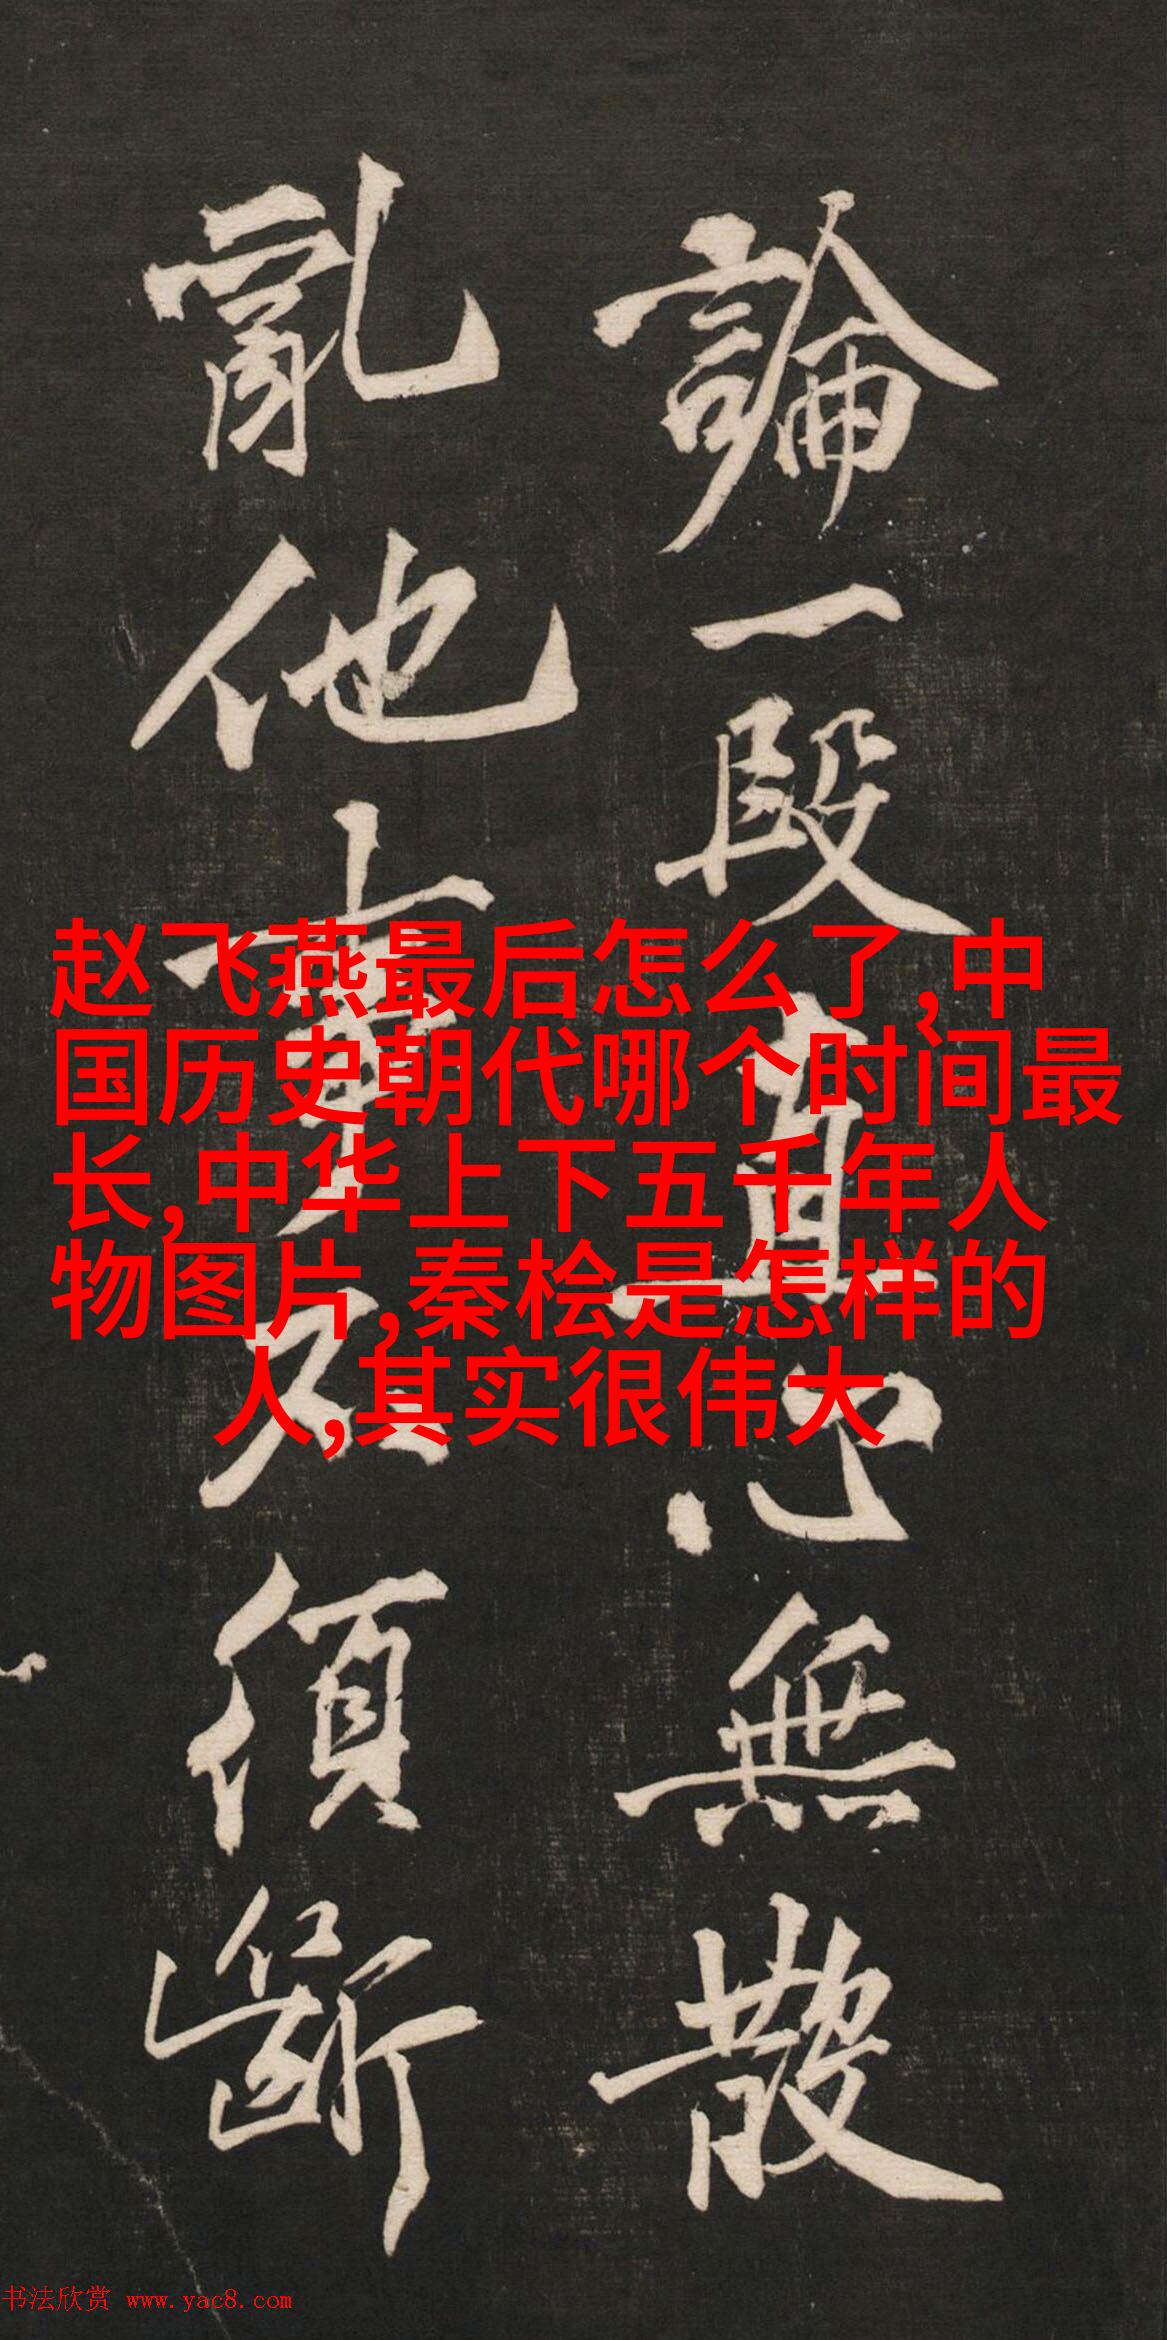 論一段直心無散
亂他事不須斷
赵飞燕最后怎么了,中
国历史朝代哪个时间最
长,中华上下五千年人
物图片,秦桧是怎样的
人,其实很伟大
书法欣赏 www.yac8.com